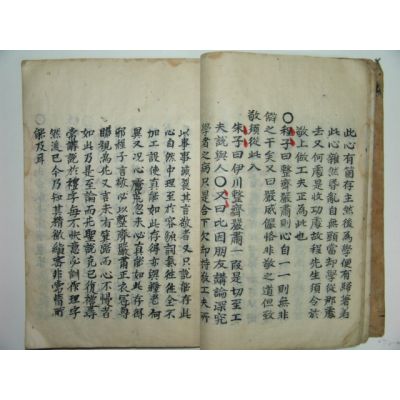 此心有箇存主然後為學便有歸著若
此心雜然昏亂自無頭當却學從那處
去又何處是收功處故程先生須令於
敬上做工夫正為此也
○程子曰整齊嚴肅則心自一一則無非
僻之干矣又曰嚴威儼恪非敬之道但致
敬須從此入
朱子曰伊川整齊嚴肅一段是切至工
夫說與人○又曰比因朋友講論深究
學者之病只是合下欠却持敬工夫所
以事事滅裂其言敬者又只說能存此
心自然中理至於容貌詞氣往往全不
加工設使真能如此存得亦與釋老何
異又况心慮荒忽未必真能如此存得
邪程子言敬必以整齊嚴肅正衣冠尊
瞻視為先又言未有箕踞而心不慢者
如此乃是至論而先聖說克已復禮尋
常講說於禮字每不快意必訓作理字
然後已今乃知其精微縝密非常情所